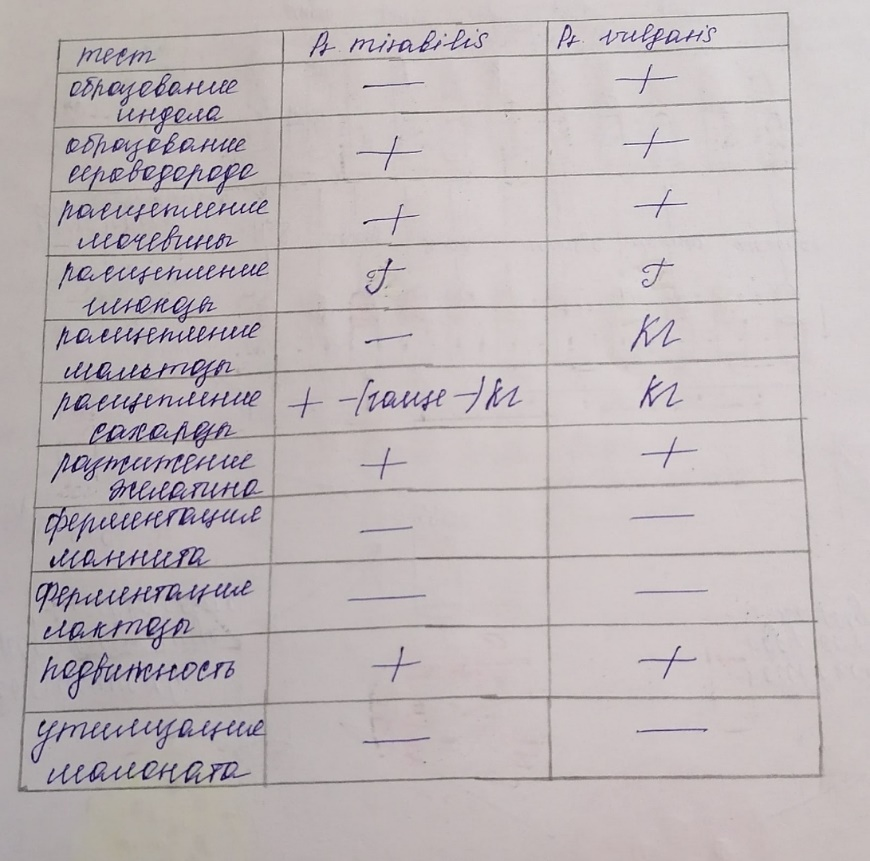 тест Pr. mirabilis Pr. vulgaris
образование
индола — +
образование
сероводорода + +
расщепление
мочевины + +
расщепление
глюкозы Г Г
расщепление
мальтозы — КГ
расщепление
сахарозы + −(чаще −) КГ КГ
разжижение
желатина + +
ферментация
маннита — —
ферментация
лактозы — —
подвижность + +
утилизация
малоната — —